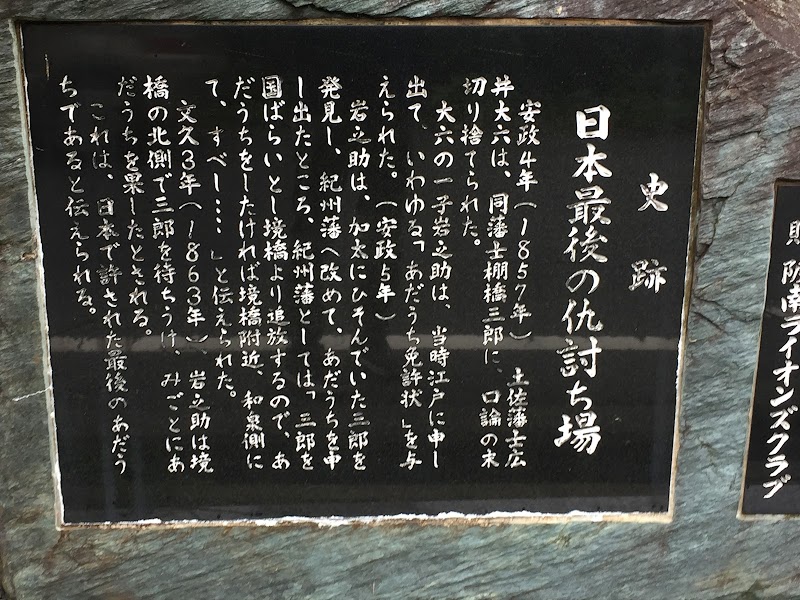 史跡
日本最後の仇討ち場
安政4年(1857年)土佐藩士広
井大六は、同藩士棚橋三郎に、口論の末
切り捨てられた。
大六の一子岩之助は、当時江戸に申し
出て、いわゆる「あだうち免許状」を与
えられた。(安政5年)
岩之助は、加太にひそんでいた三郎を
発見し、紀州藩へ改めて、あだうちを申
し出たところ、紀州藩としては「三郎を
国ばらいとし境橋より追放するので、あ
だうちをしたければ境橋附近、和泉側に
て、すべし‥‥」と伝えられた。
文久3年(1863年)、岩之助は境
橋の北側で三郎を待ちうけ、みごとにあ
だうちを果したとされる。
これは、日本で許された最後のあだう
ちであると伝えられる。
贈 阪南ライオンズクラブ